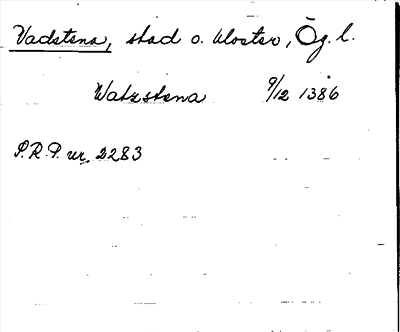 Vadstena, stad o. kloster, Ög. l.
Watzstena 9/12 1386
P.R.P. nr. 2283